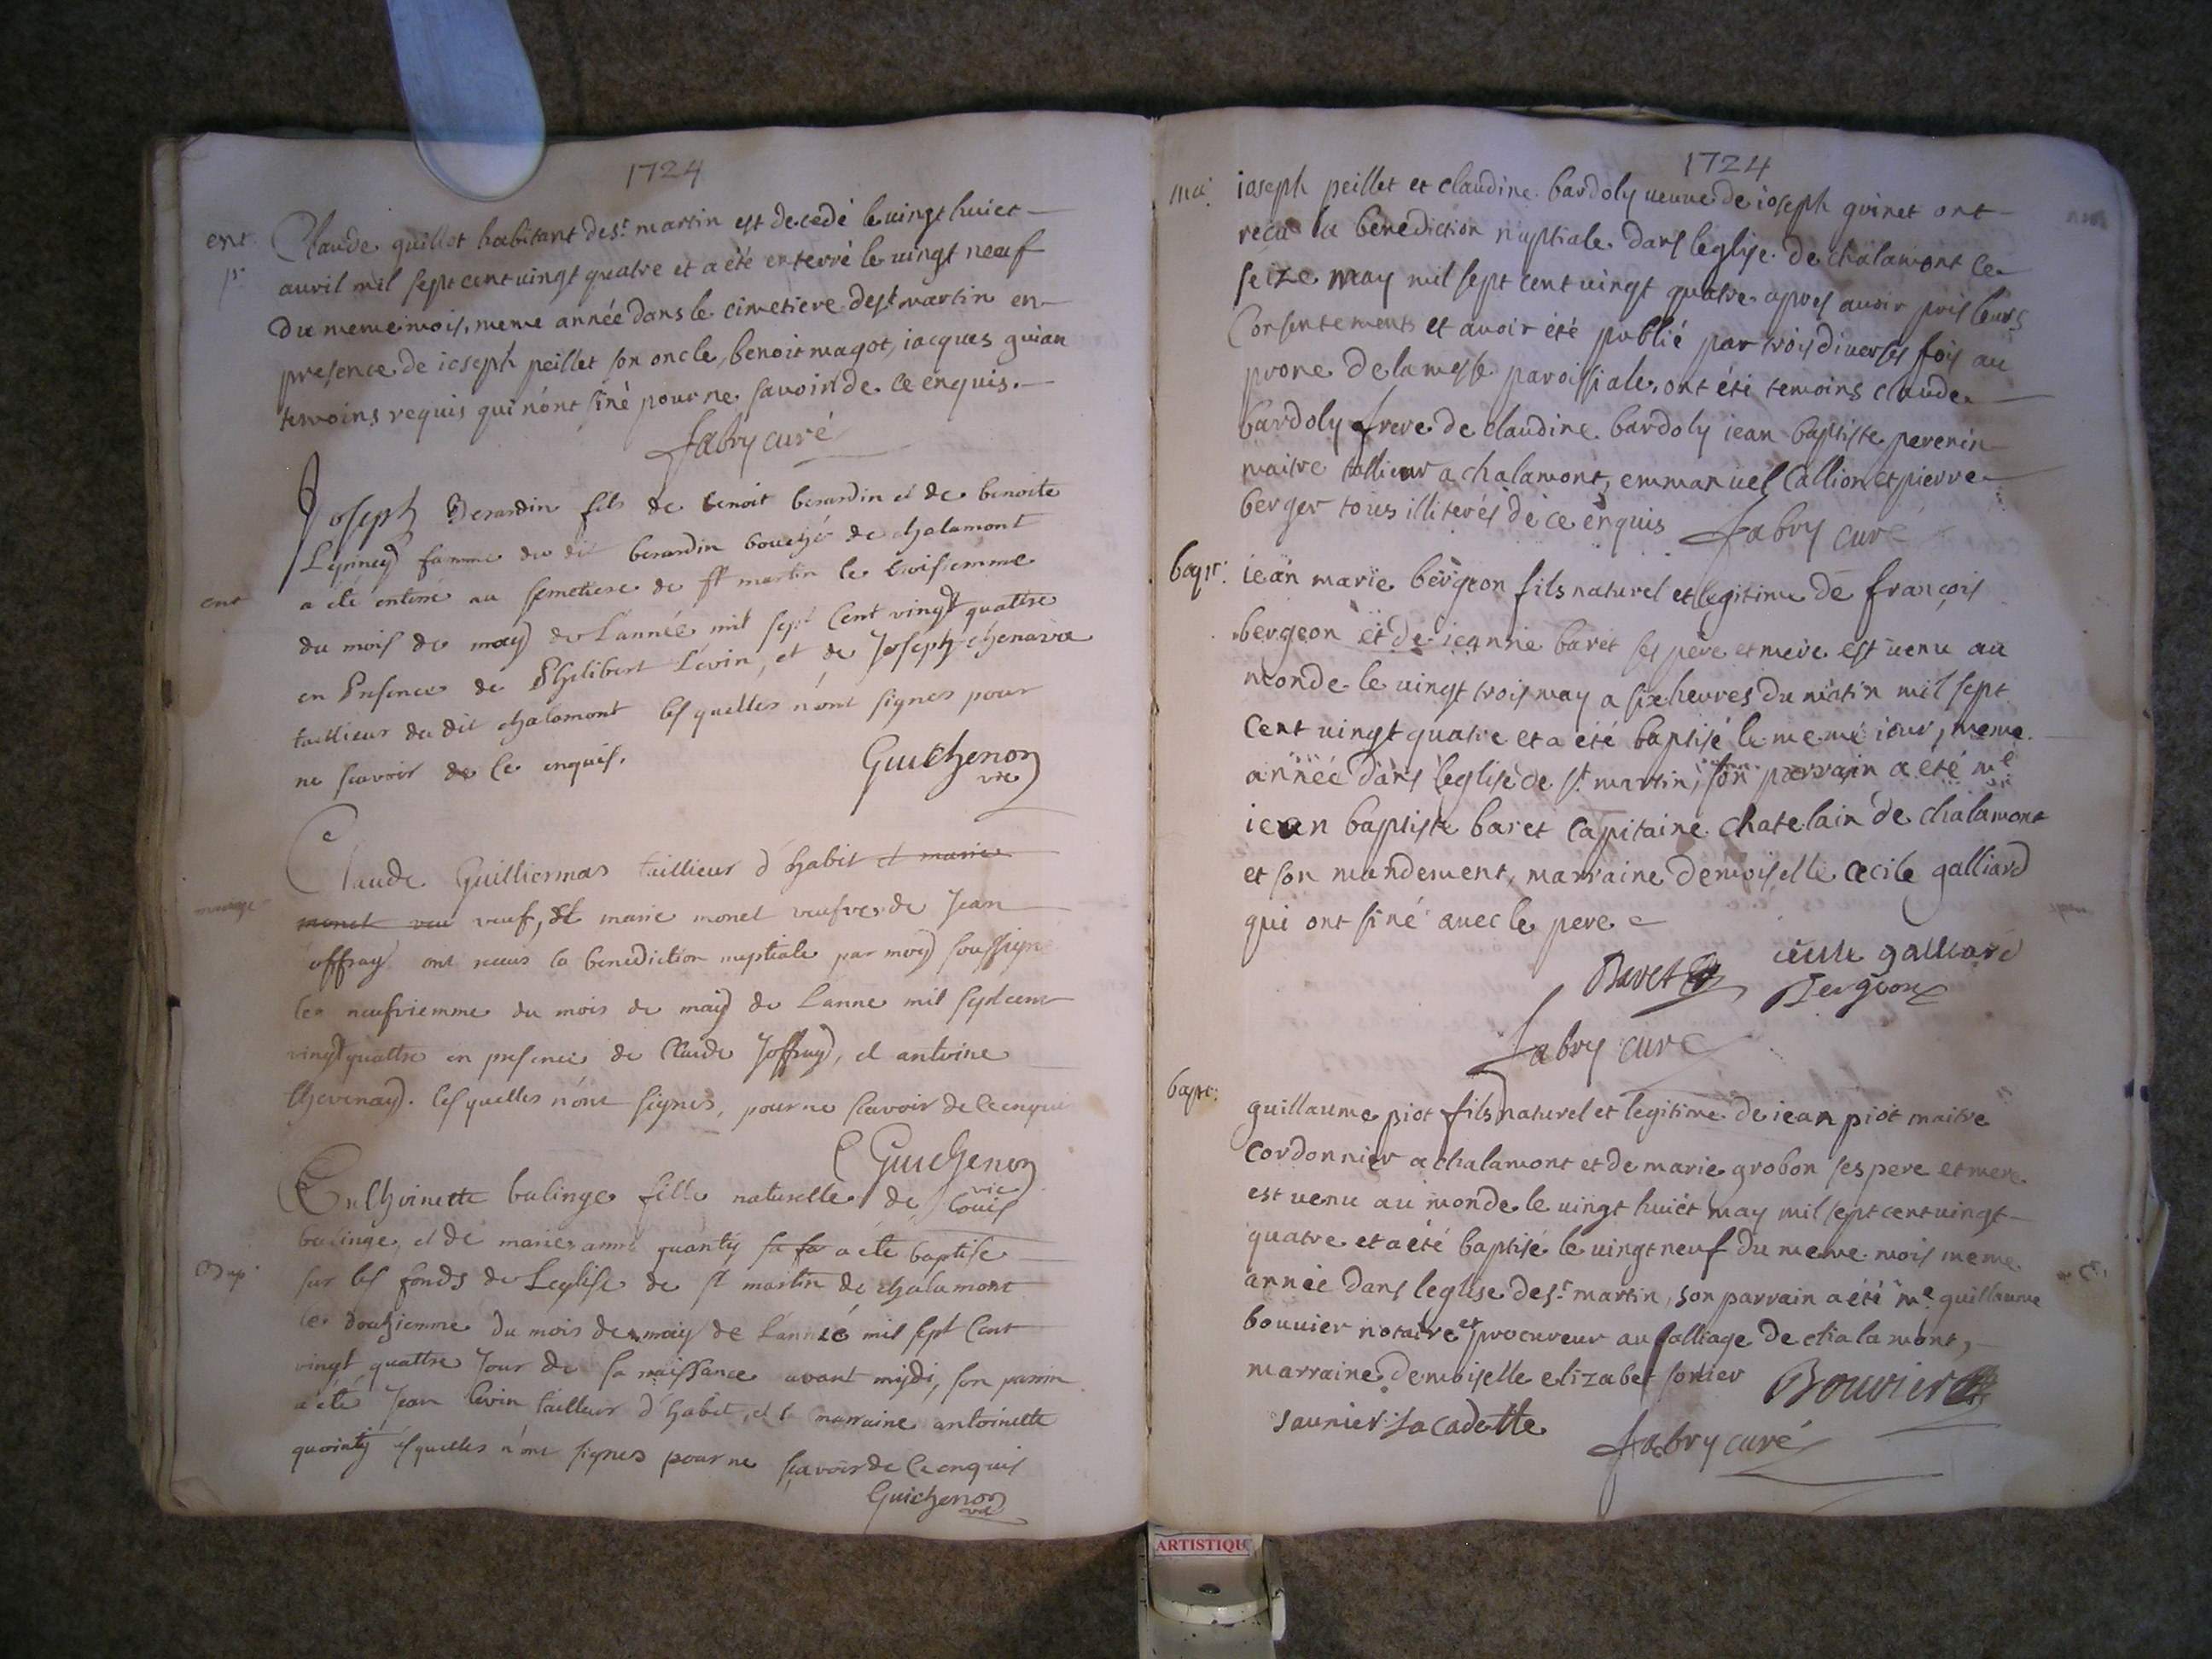 1724
ent.
Claude guillot habitant de st martin est decedé le uingt huict
auril mil sept cent uingt quatre et a été enterré le uingt neuf
du meme mois, meme année dans le cimetiere de st martin en
presence de ioseph peillet son oncle, benoit magot, iacques guian
temoins requis qui n'ont siné pour ne savoir de ce enquis.
fabry curé
Joseph Berardin fils de benoit berardin et de benoite
Lepiney famme du dit berardin bouché de chalamont
ent
a été entérré au semetiere de st martin le troisiemme
du mois de may de L'année mil sept Cent vingt quattre
en Presence de Philibert Lévin, et de Joseph chenavas
taillieur du dit chalamont lesquelles n'ont signes pour
ne scavoir de ce enquis.
Guichenon
vre
Claude Guilliermas taillieur d'habit et marie
mariage
monet veu veuf, et marie monet veufve de Jean
joffray ont receus la benediction nuptiale par moy soussigné
le neufviemme du mois de may de Lanne mil sept cent
vingt quattre en presence de Claude Joffray, et antoine
thevenay. lesquelles n'ont signes, pour ne scavoir de ce enquis
C Guichenon
vic
Anthoinette balinge fille naturelle de Louis
balinge, et de marie anne quanty sa fa a été baptise
Bap.
sur les fonds de L'eglise de st martin de chalamont
le douziemme du mois de may de L'année mil sept Cent
vingt quattre Jour de sa naissance avant midi, son parrin
a été Jean levin tailleur d'habit, et la marraine antoinette
quointy lesquelles n'ont signes pour ne scavoir de ce enquis
Guichenon
vic
1724
ma.
ioseph peillet et claudine bardoly ueuue de ioseph guinet ont
recu la benediction nuptiale dans leglise de chalamont le
seize may mil sept cent uingt quatre apres auoir pris leurs
Consentements et auoir été publié par trois diuerses fois au
prone de la messe paroissiale, ont été temoins claude
bardoly frere de claudine bardoly iean baptiste perenin
maitre tallieur a chalamont, emmanuel Callion et pierre
berger tous illiterés de ce enquis fabry curé
bapt:
iean marie bergeon fils naturel et legitime de françois
bergeon et de ieanne baret ses pere et mere est uenu au
monde le uingt trois may a six heures du matin mil sept
cent uingt quatre et a été baptisé le meme iour, meme
année dans l'eglise de st martin, son parrain a eté me
iean baptiste baret Capitaine chatelain de chalamont
et son mandement, marraine demoiselle cecile galliard
qui ont siné auec le pere
Baret
cecile galliard
Bergeon
fabry curé
bapt:
guillaume piot fils naturel et legitime de iean piot maitre
Cordonnier a chalamont et de marie grobon ses pere et mere
est uenu au monde le uingt huict may mil sept cent uingt
quatre et a été baptisé le uingt neuf du meme mois meme
année dans leglise de st martin, son parrain a été me guillaume
bouuier notaire et procureur au balliage de chalamont,
marraine demoiselle elizabet sonier Bouvier
saunier la cadette
fabry curé
ARTISTIQU